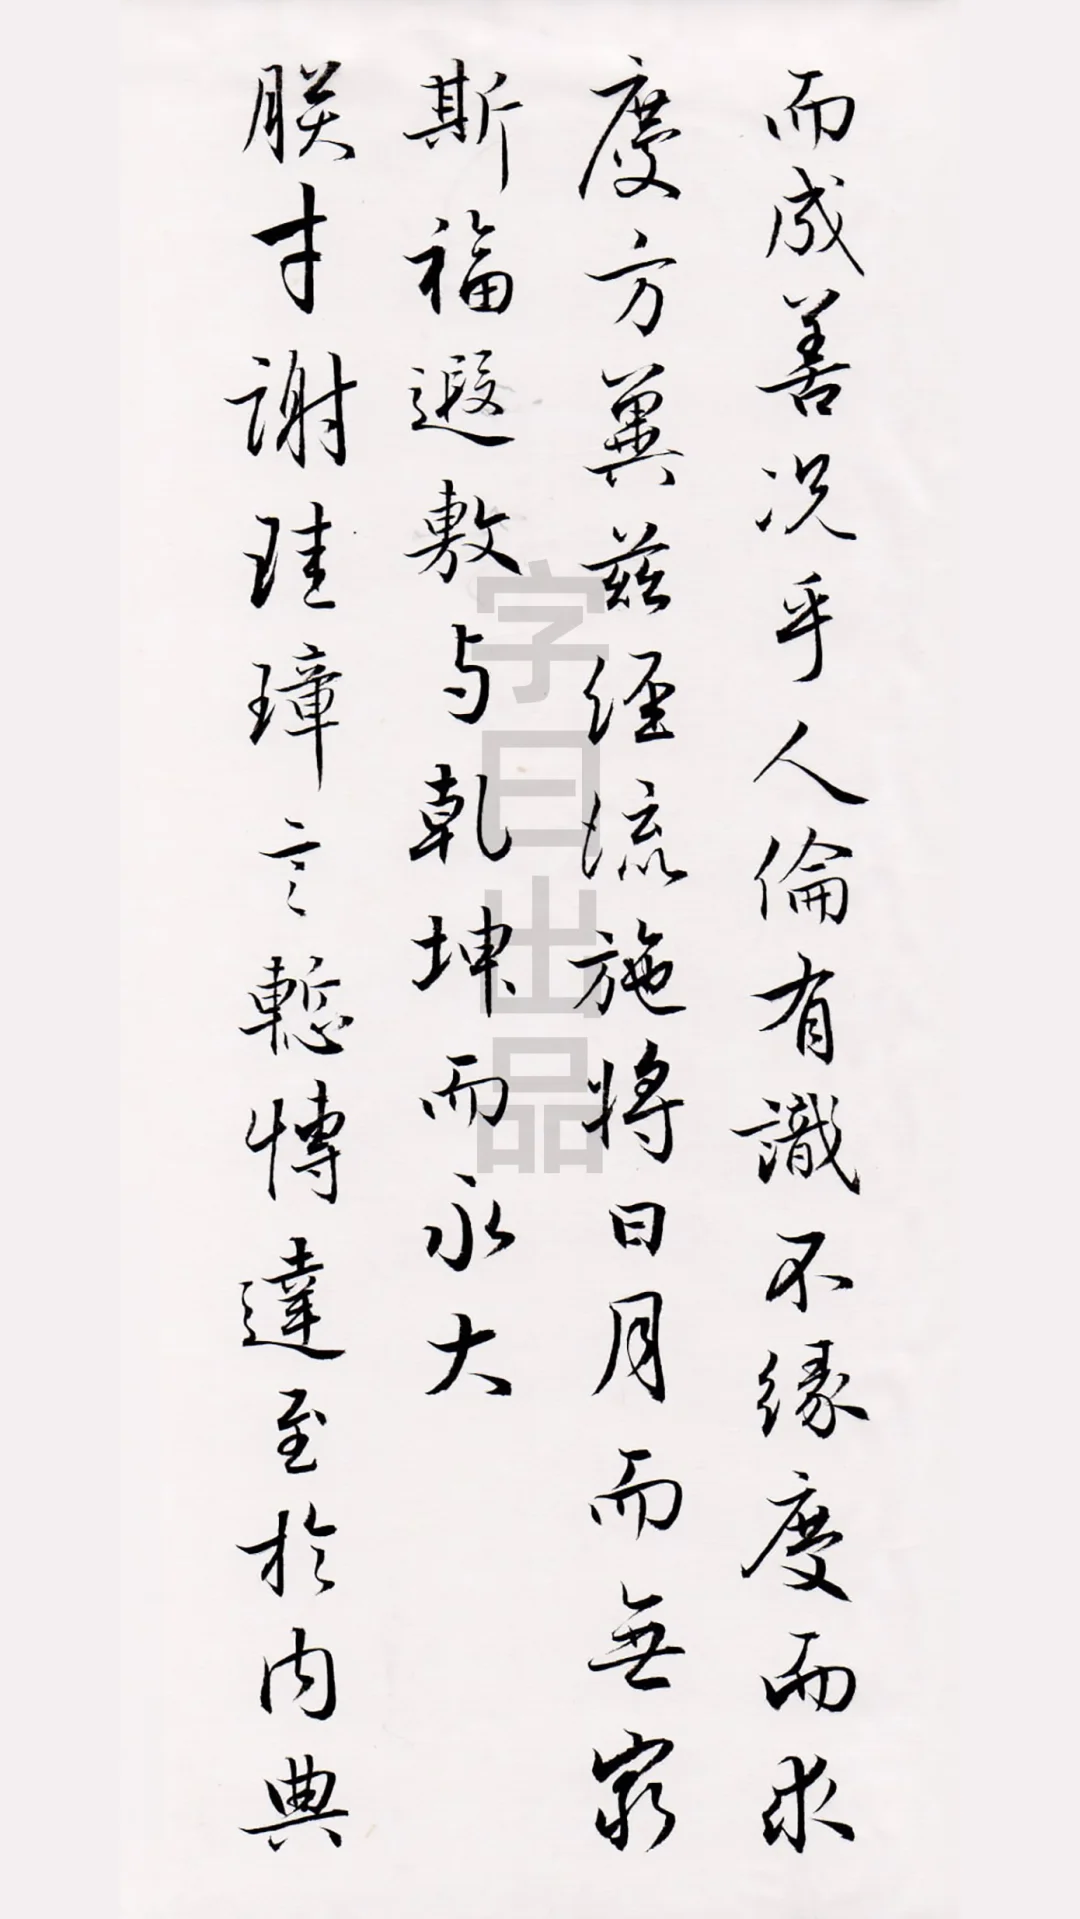 而成善况乎人倫有識不緣慶而求
慶方冀茲經流施將日月而無窮
斯福遐敷与乾坤而永大
朕才謝珪璋言慙博達至於内典
字曰出品